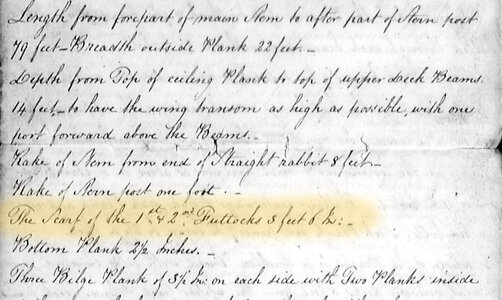 Length from forepart of main Stem to after part of Stern post
79 feet – Breadth outside Plank 22 feet. –
Depth from Top of ceiling Plank to top of upper Deck Beams.
14 feet – to have the wing transom as high as possible, with one
port forward above the Beams. –
Rake of Stem from end of Straight rabbit 8 feet –
Rake of Stern post one foot. –
The Scarf of the 1st & 2nd Futtocks 3 feet 6 In: –
Bottom Plank 2½ Inches. –
Three Bilge Plank of 3½ In: on each side with Two Planks inside